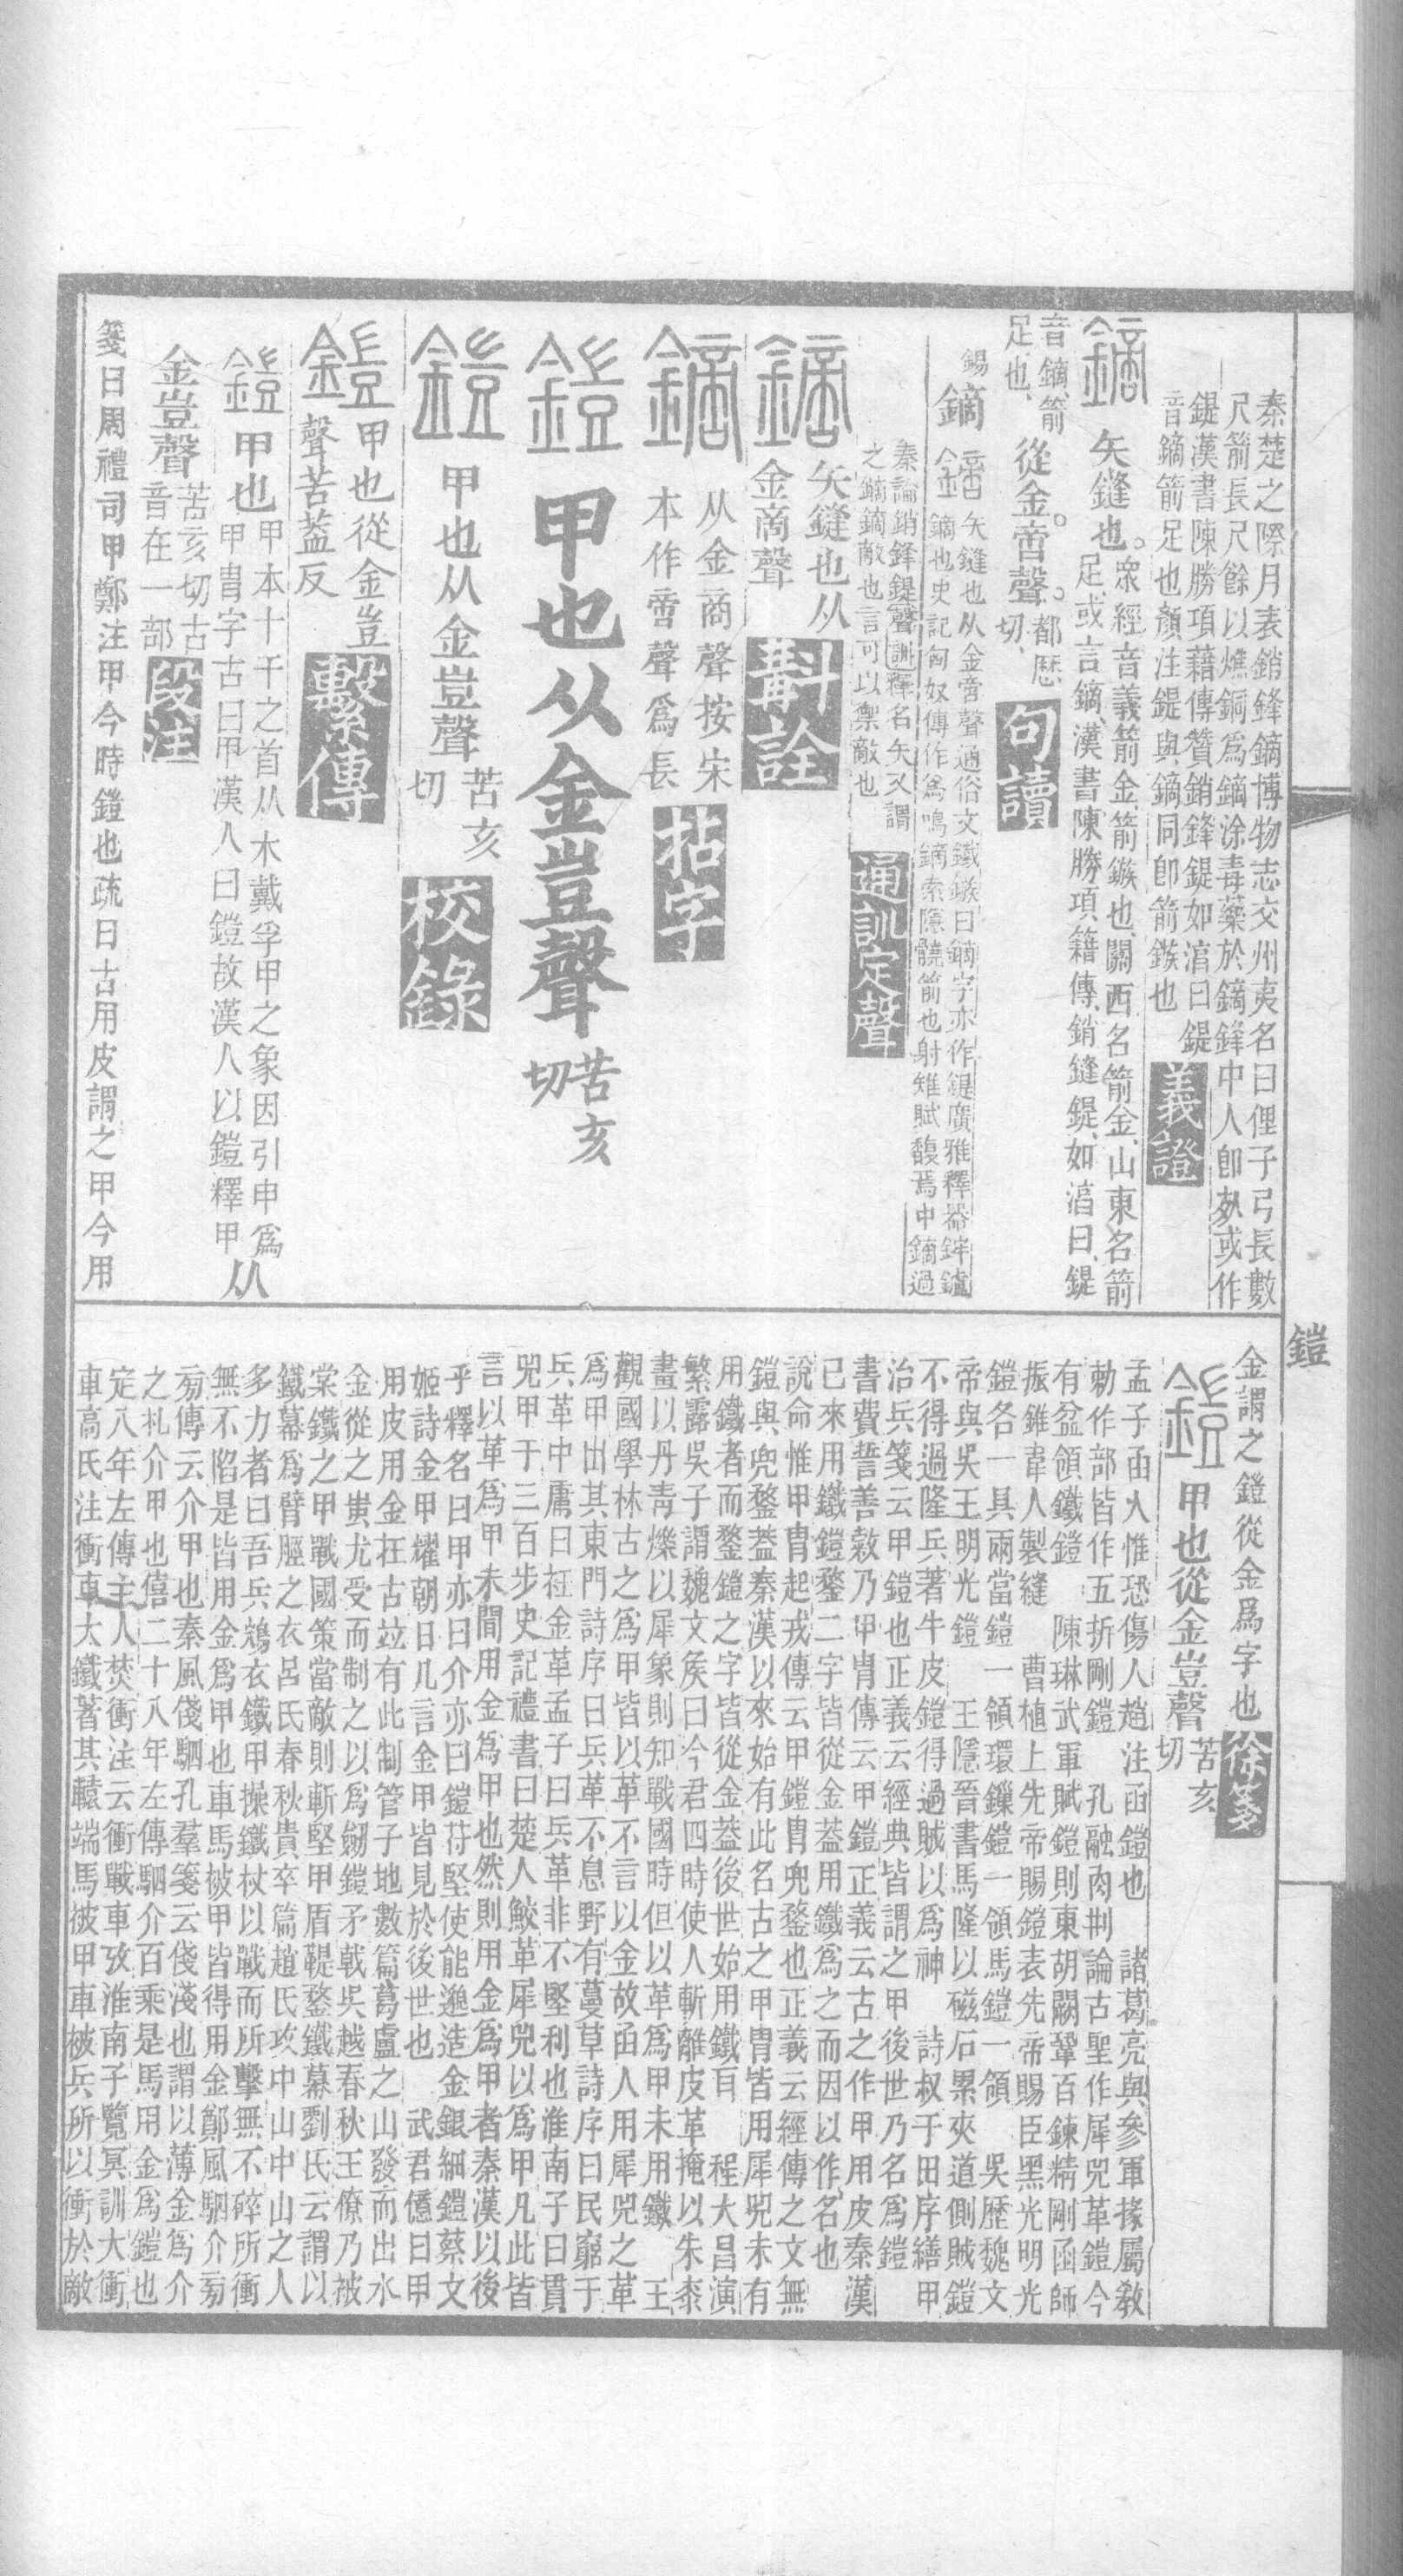 秦楚之際月表銷鋒鏑博物志交州夷名曰俚子弓長數
尺箭長尺餘以燋銅爲鏑涂毒藥於鏑鋒中人卽死或作
鍉漢書陳勝項藉傳贊銷鋒鍉如湻曰鍉
音鏑箭足也顏注鍉與鏑同卽箭鏃也
義證
鏑
矢鏠也。
衆經音義箭金箭鏃也關西名箭金山東名箭
足或言鏑漢書陳勝項籍傳銷鏠鍉如湻曰鍉
音鏑箭
足也
從金啻聲。
都歷
切
句讀
錫
鏑
鏑
矢鏠也从金啻聲通俗文鐵鏃曰鏑字亦作鍉廣雅釋器錍鑪
鏑也史記匈奴傳作爲鳴鏑索隱髐箭也射雉賦馥焉中鏑過
秦論銷鋒鍉聲訓釋名矢又謂
之鏑鏑敵也言可以禦敵也
通訓定聲
鏑
矢鏠也从
金啇聲
斠詮
鏑
从金商聲按宋
本作啻聲爲長
拈字
鎧
甲也从金豈聲
苦亥
切
鎧
甲也从金豈聲
苦亥
切
校錄
鎧
甲也從金豈
聲苦蓋反
繫傳
鎧
甲也
甲本十干之首从木戴孚甲之象因引申爲
甲胄字古曰甲漢人曰鎧故漢人以鎧釋甲
从
金豈聲
苦亥切古
音在一部
段注
箋曰周禮司甲鄭注甲今時鎧也疏曰古用皮謂之甲今用
鎧
金謂之鎧從金爲字也
徐箋
鎧
甲也從金豈聲
苦亥
切
孟子函人惟恐傷人趙注函鎧也 諸葛亮與參軍掾屬教
勅作部皆作五折剛鎧 孔融肉刑論古聖作犀兕革鎧今
有盆領鐵鎧 陳琳武軍賦鎧則東胡闕鞏百鍊精剛函師
振錐韋人製縫 曹植上先帝賜鎧表先帝賜臣黑光明光
鎧各一具兩當鎧一領環鏁鎧一領馬鎧一領 吳歷魏文
帝與吳王明光鎧 王隱晉書馬隆以磁石累夾道側賊鎧
不得過隆兵著牛皮鎧得過賊以爲神 詩叔于田序繕甲
治兵箋云甲鎧也正義云經典皆謂之甲後世乃名爲鎧
書費誓善敹乃甲冑傳云甲鎧正義云古之作甲用皮秦漢
已來用鐵鎧鍪二字皆從金蓋用鐵爲之而因以作名也
說命惟甲冑起戎傳云甲鎧冑兜鍪也正義云經傳之文無
鎧與兜鍪蓋秦漢以來始有此名古之甲冑皆用犀兕未有
用鐵者而鍪鎧之字皆從金蓋後世始用鐵耳 程大昌演
繁露吳子謂魏文矦曰今君四時使人斬離皮革掩以朱桼
畫以丹青爍以犀象則知戰國時但以革爲甲未用鐵 王
觀國學林古之爲甲皆以革不言以金故函人用犀兕之革
爲甲出其東門詩序曰兵革不息野有蔓草詩序曰民窮于
兵革中庸曰衽金革孟子曰兵革非不堅利也淮南子曰貫
兕甲于三百步史記禮書曰楚人鮫革犀兕以爲甲凡此皆
言以革爲甲未閒用金爲甲也然則用金爲甲者秦漢以後
乎釋名曰甲亦曰介亦曰鎧苻堅使能邈造金銀細鎧蔡文
姬詩金甲耀朝日凡言金甲皆見於後世也 武君億曰甲
用皮用金在古竝有此制管子地數篇葛盧之山發而出水
金從之蚩尤受而制之以爲劒鎧矛戟吳越春秋王僚乃被
棠鐵之甲戰國策當敵則斬堅甲盾鞮鍪鐵幕劉氏云謂以
鐵幕爲臂脛之衣呂氏春秋貴卒篇趙氏攻中山中山之人
多力者曰吾兵鴆衣鐵甲操鐵杖以戰而所擊無不碎所衝
無不陷是皆用金爲甲也車馬被甲皆得用金鄭風駟介旁
旁傳云介甲也秦風俴駟孔羣箋云俴淺也謂以薄金爲介
之札介甲也僖二十八年左傳駟介百乘是馬用金爲鎧也
定八年左傳主人焚衝注云衝戰車攷淮南子覽冥訓大衝
車高氏注衝車大鐵著其轅端馬被甲車被兵所以衝於敵